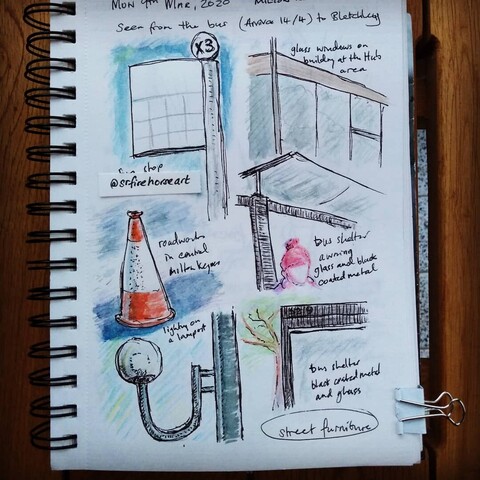 MON 9TH MAR, 2020 MILTON
Seen from the bus (Arriva 14/4) to Bletchley
X3
glass windows on
building at the Hub
area
shop
@srfirehorseart
roadworks
in central
milton keynes
bus shelter
awning
glass and black
coated metal
lighting on
a lampost
bus shelter
black coated metal
and glass
street furniture